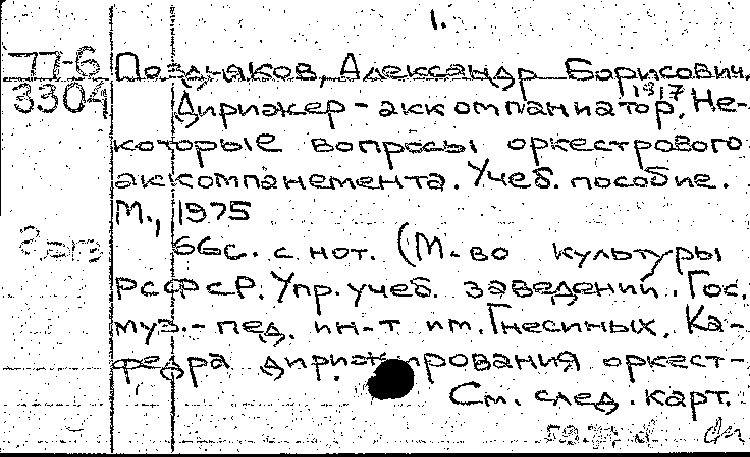 1.
П-6 Поздняков, Александр Борисович.
3304 Дирижер-аккомпаниатор. Не-
которые вопросы оркестрового
аккомпанемента. Учеб. пособие.
М., 1975
66с. с нот. (М-во культуры
РСФСР. Упр. учеб. заведений. Гос.
муз.-пед. ин-т им. Гнесиных. Ка-
федра дирижирования оркест-
См. след. карт.